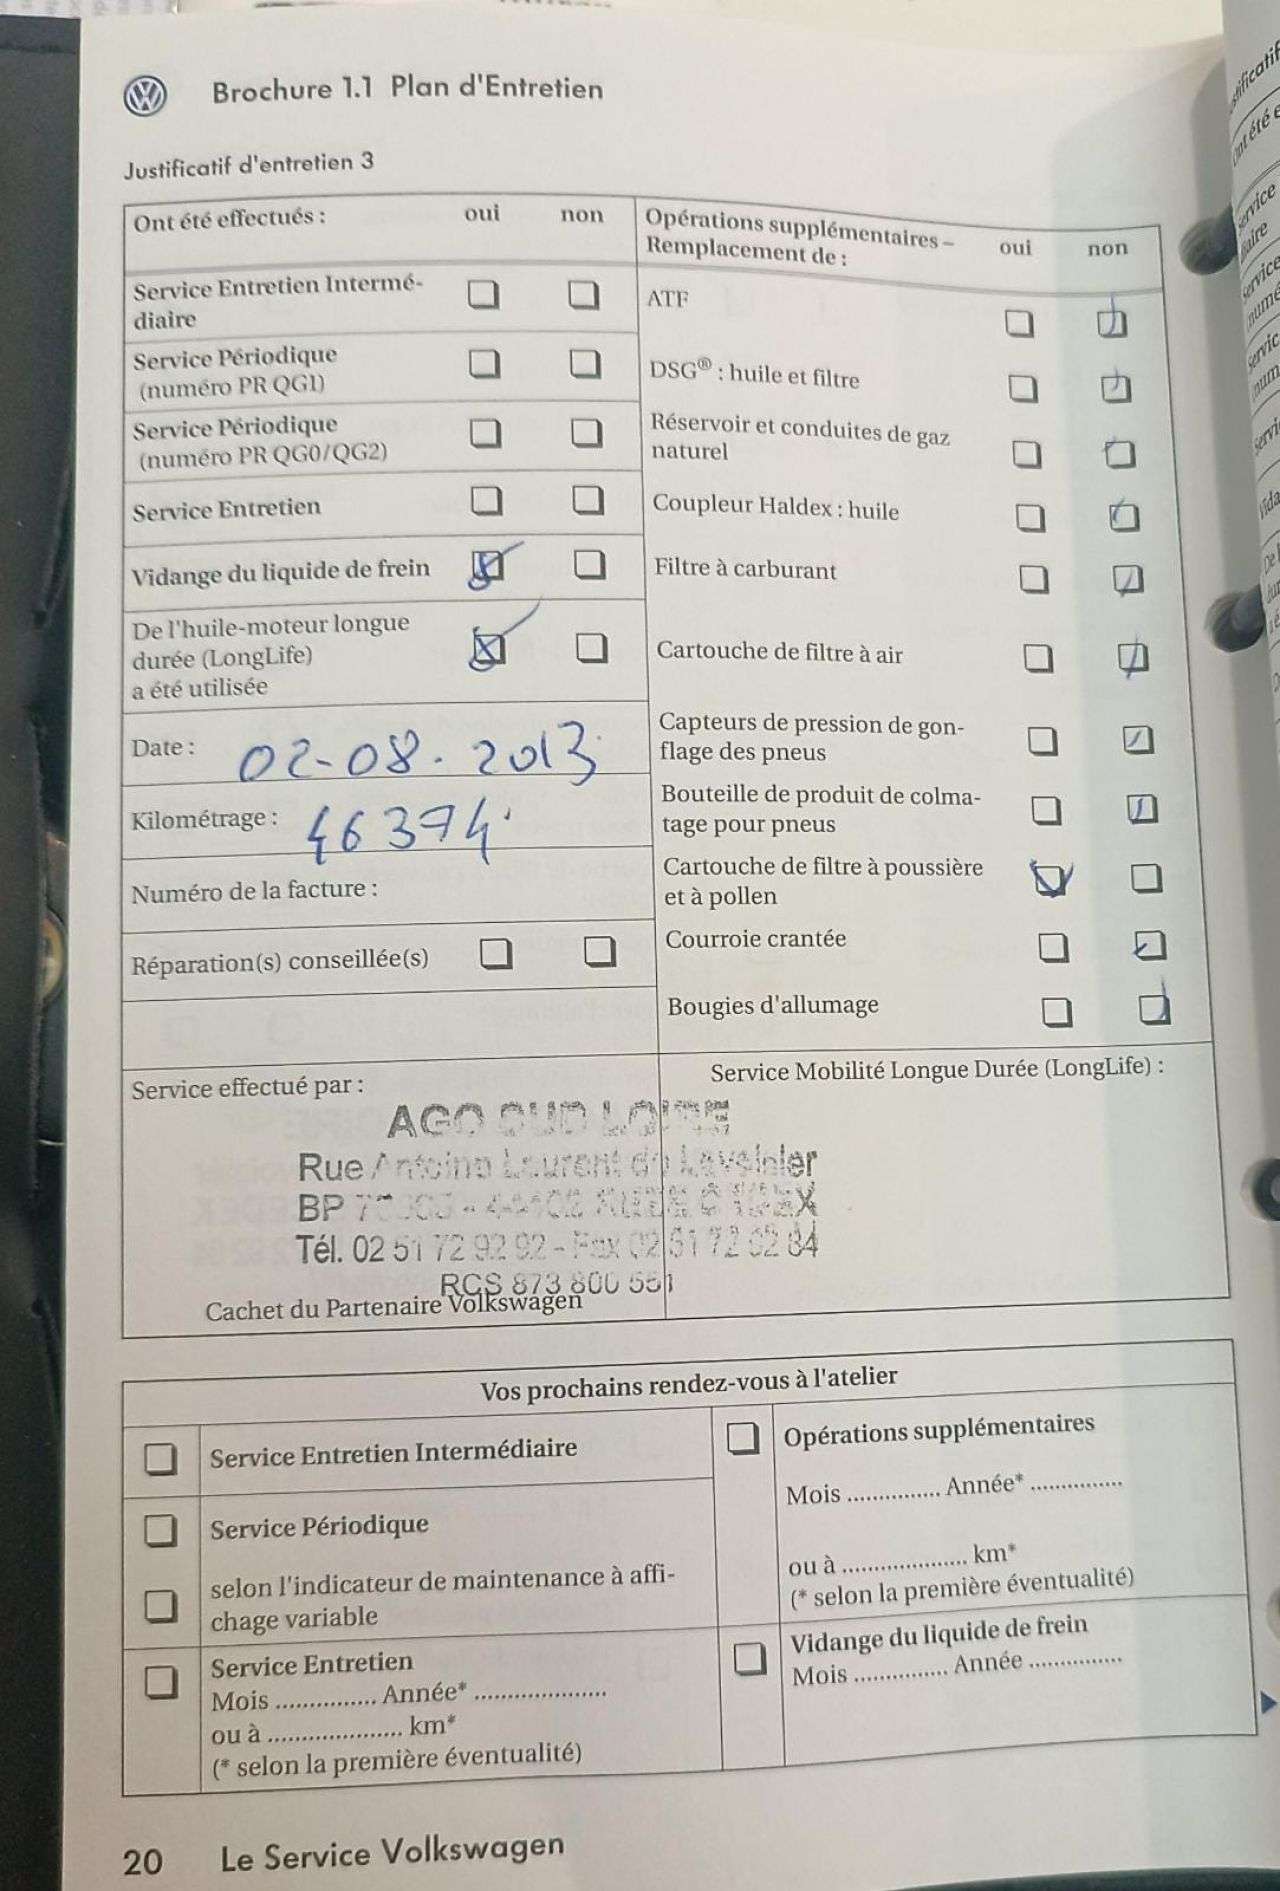 Brochure 1.1 Plan d'Entretien
Justificatif d'entretien 3
Ont été effectués : oui non
Service Entretien Intermé-
diaire
Service Périodique
(numéro PR QG1)
Service Périodique
(numéro PR QG0/QG2)
Service Entretien
Vidange du liquide de frein
De l'huile-moteur longue
durée (LongLife)
a été utilisée
Date : 02-08.2013
Kilométrage : 46374
Numéro de la facture :
Réparation(s) conseillée(s)
Opérations supplémentaires –
Remplacement de : oui non
ATF
DSG® : huile et filtre
Réservoir et conduites de gaz
naturel
Coupleur Haldex : huile
Filtre à carburant
Cartouche de filtre à air
Capteurs de pression de gon-
flage des pneus
Bouteille de produit de colma-
tage pour pneus
Cartouche de filtre à poussière
et à pollen
Courroie crantée
Bougies d'allumage
Service effectué par :
Service Mobilité Longue Durée (LongLife) :
AGO SUD LOIRE
Rue Antoine Laurent de Lavoisier
BP
Tél. 02 51 72 92 92 - Fax 02 51 72 62 84
RCS 873 800 551
Cachet du Partenaire Volkswagen
Vos prochains rendez-vous à l'atelier
Service Entretien Intermédiaire
Service Périodique
selon l'indicateur de maintenance à affi-
chage variable
Service Entretien
Mois ............... Année* ....................
ou à .................... km*
(* selon la première éventualité)
Opérations supplémentaires
Mois .............. Année* ..............
ou à ................... km*
(* selon la première éventualité)
Vidange du liquide de frein
Mois .............. Année ..............
20 Le Service Volkswagen